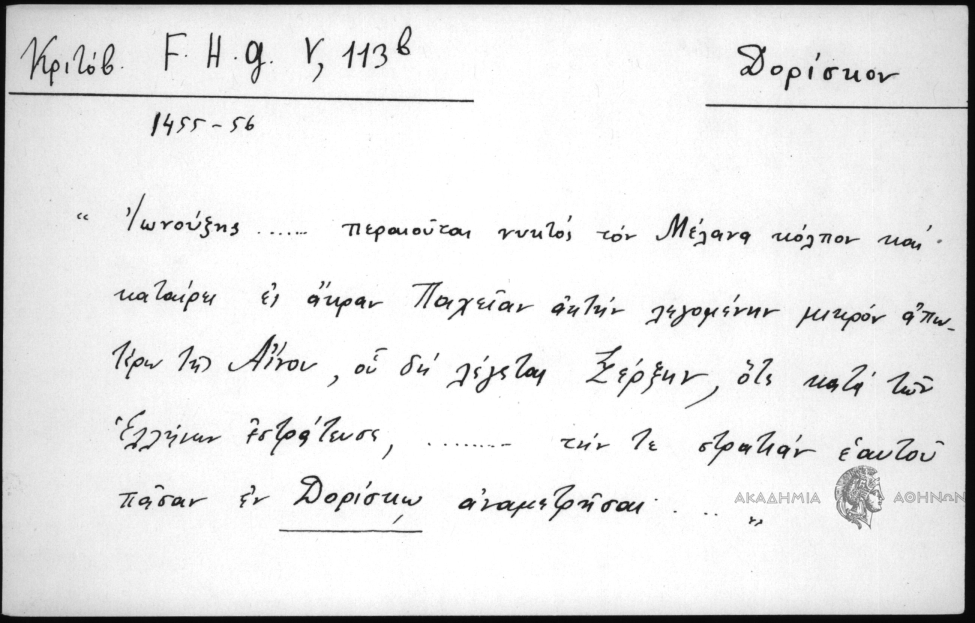 Κριτόβ. F. H. G. V, 113b
Δορίσκον
1455-56
“ Ἰωνούξης ....... περαιοῦται νυκτός τόν Μέλανα κόλπον καί
καταίρει ἐς ἄκραν Παχεῖαν ἀκτήν λεγομένην μικρόν ἀπω-
τέρω τῆς Αἴνου, οὗ δή λέγεται Ξέρξην, ὅτε κατά τῶν
Ἑλλήνων ἐστράτευσε, ......... τήν τε στρατιάν ἑαυτοῦ
πᾶσαν ἐν Δορίσκῳ ἀναμετρῆσαι .... ”
ΑΚΑΔΗΜΙΑ ΑΘΗΝΩΝ